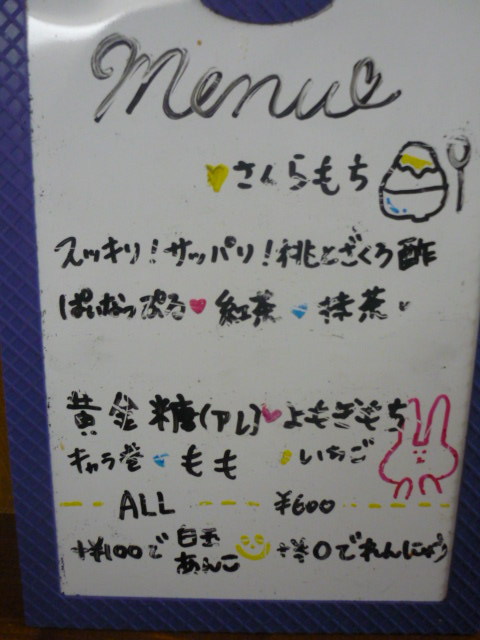 Menu
さくらもち
スッキリ!サッパリ!桃とざくろ酢
ぱいなっぷる♥紅茶♥抹茶
黄金糖(アレ)♥よもぎもち
キャラ登♥もも♥いちご
ALL ¥600
+¥100で白玉あんこ +¥0でれんにゅう